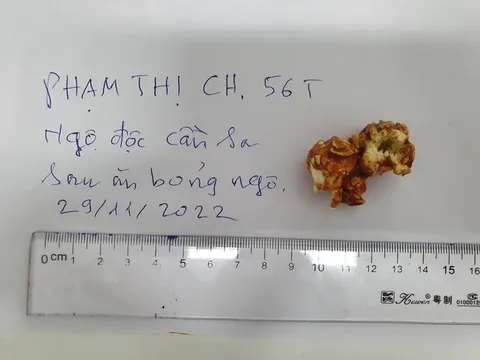 PHẠM THỊ CH. 56T
Ngộ độc cần sa
Sau ăn bỏng ngô.
29/11/2022
0 cm 1 2 3 4 5 6 7 8 9 10 11 12 13 14 15 16
粤制